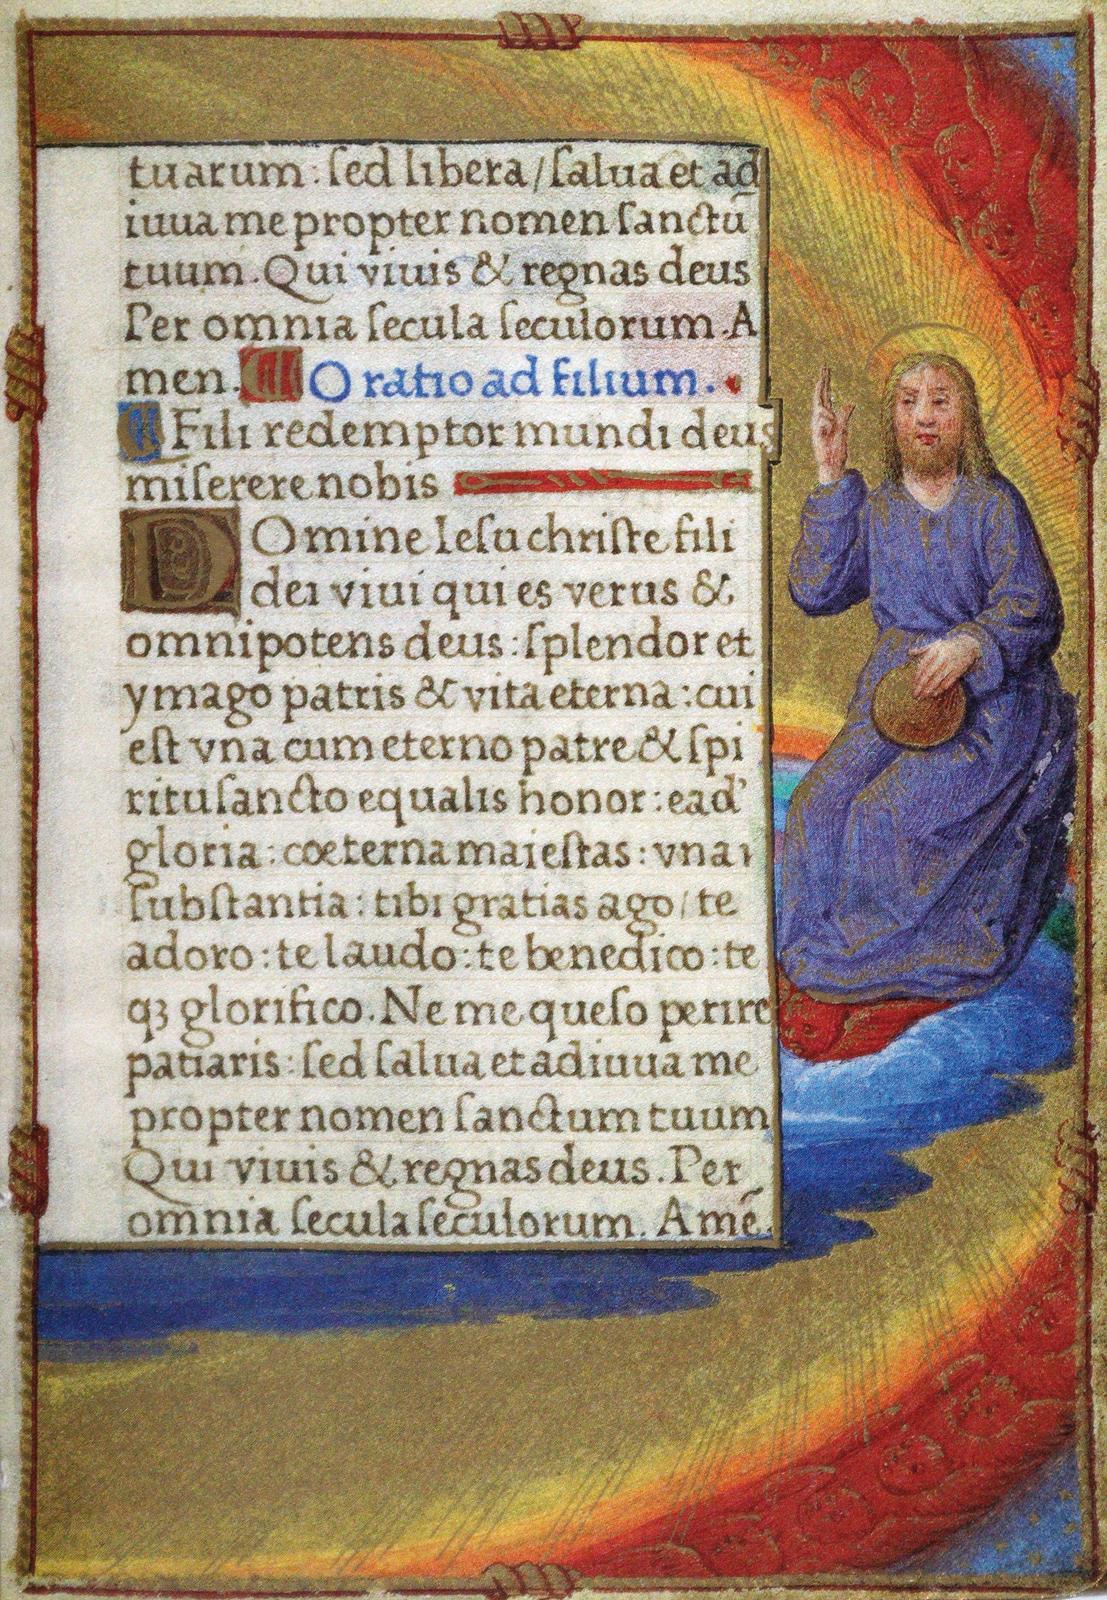 tuarum: ſed libera/ſalua et ad
iuua me propter nomen ſanctū
tuum. Qui viuis & regnas deus
Per omnia ſecula ſeculorum. A
men. Oratio ad filium.
Fili redemptor mundi deus
miſerere nobis
Domine Ieſu chriſte fili
dei viui qui es verus &
omnipotens deus: ſplendor et
ymago patris & vita eterna: cui
eſt vna cum eterno patre & ſpi
ritu ſancto equalis honor: ead'
gloria: coeterna maieſtas: vna
ſubſtantia: tibi gratias ago/te
adoro: te laudo: te benedico: te
qꝫ glorifico. Ne me queſo perire
patiaris: ſed ſalua et adiuua me
propter nomen ſanctum tuum
Qui viuis & regnas deus. Per
omnia ſecula ſeculorum. Amē.